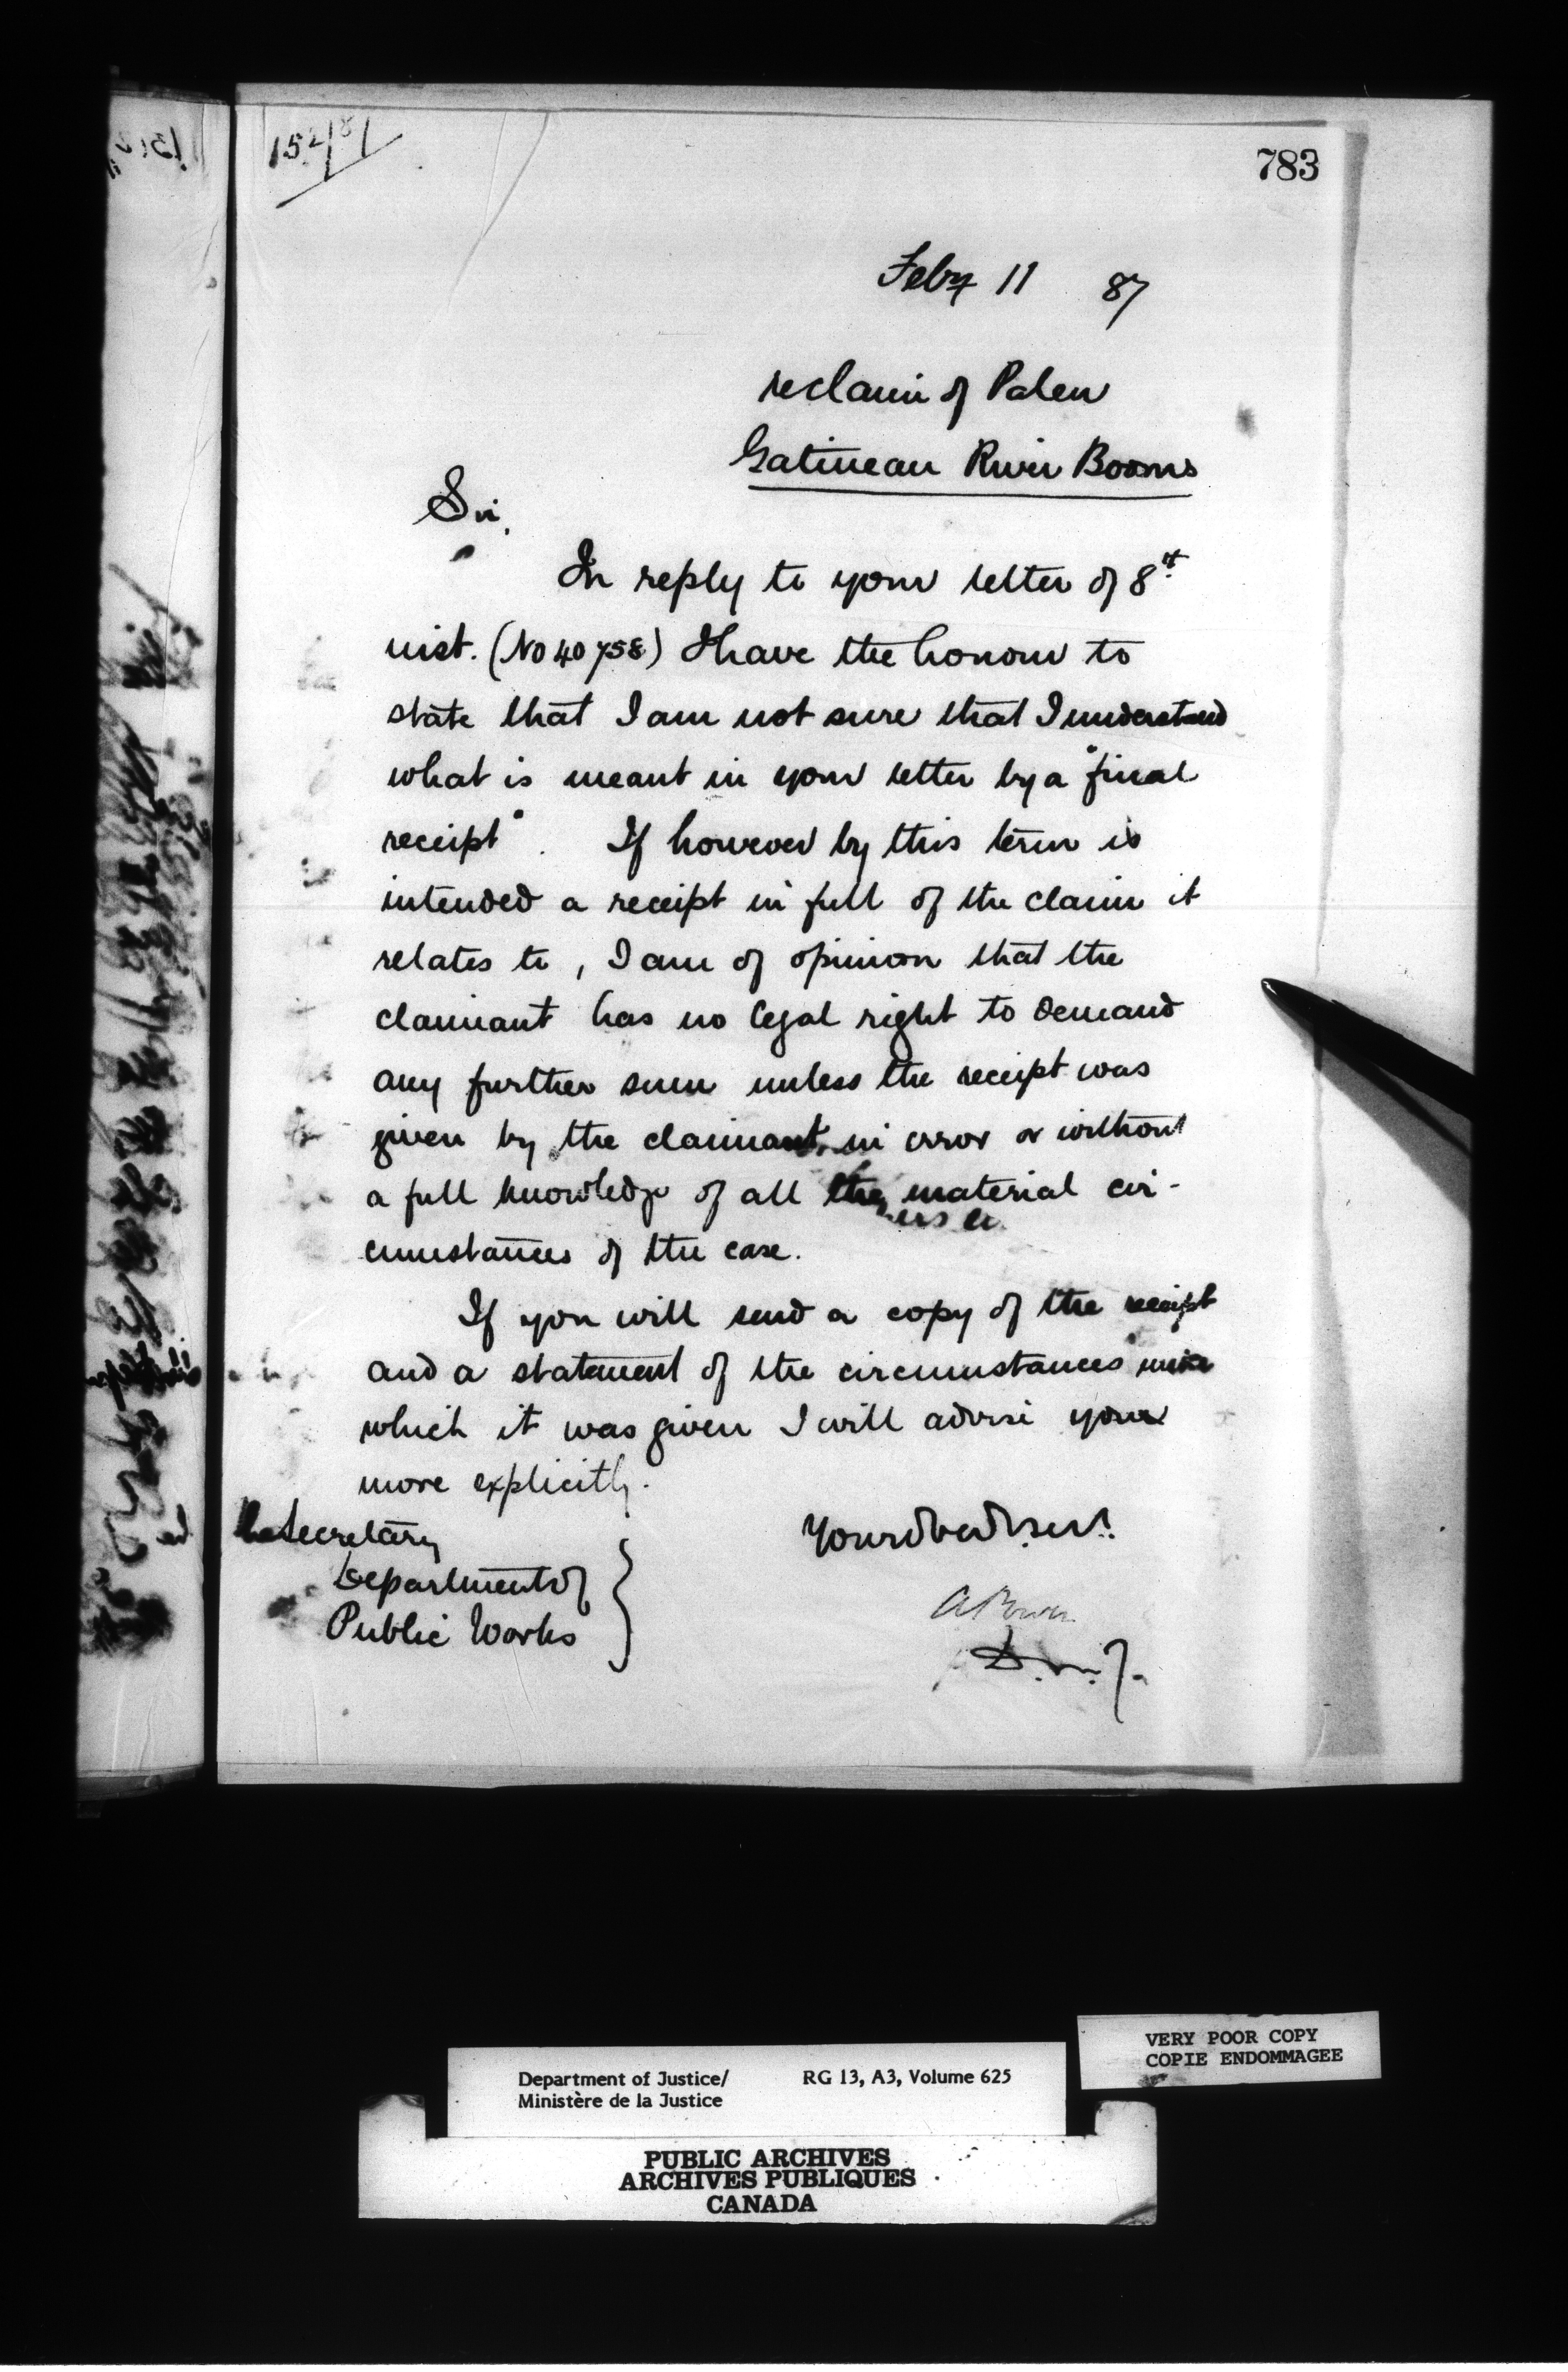 152/87
783
Feby 11 87
re claim of Palen
Gatineau River Booms
Sir,
In reply to your letter of 8th
inst. (No 40758) I have the honour to
state that I am not sure that I understand
what is meant in your letter by a "final
receipt". If however by this term is
intended a receipt in full of the claim it
relates to, I am of opinion that the
claimant has no legal right to demand
any further sum unless the receipt was
given by the claimant in error or without
a full knowledge of all the material cir-
cumstances of the case.
If you will send a copy of the receipt
and a statement of the circumstances under
which it was given I will advise you
more explicitly.
Your obed. serv.
The Secretary
Department of
Public Works
A Power
D.M.J.
VERY POOR COPY
COPIE ENDOMMAGEE
Department of Justice/ RG 13, A3, Volume 625
Ministère de la Justice
PUBLIC ARCHIVES
ARCHIVES PUBLIQUES
CANADA